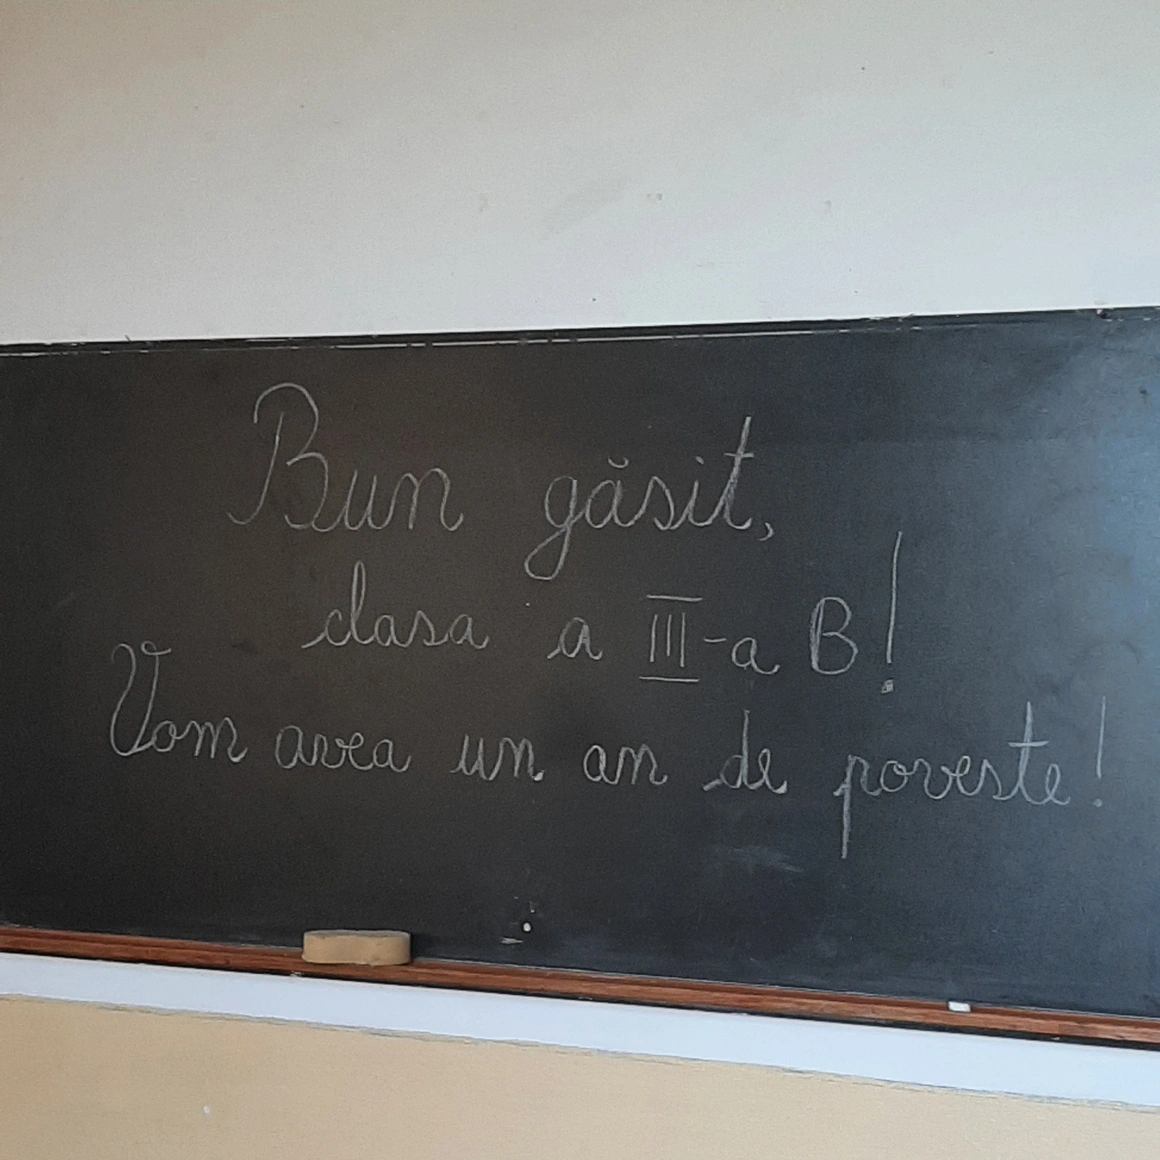 Bun găsit,
clasa a III-a B!
Vom avea un an de poveste!